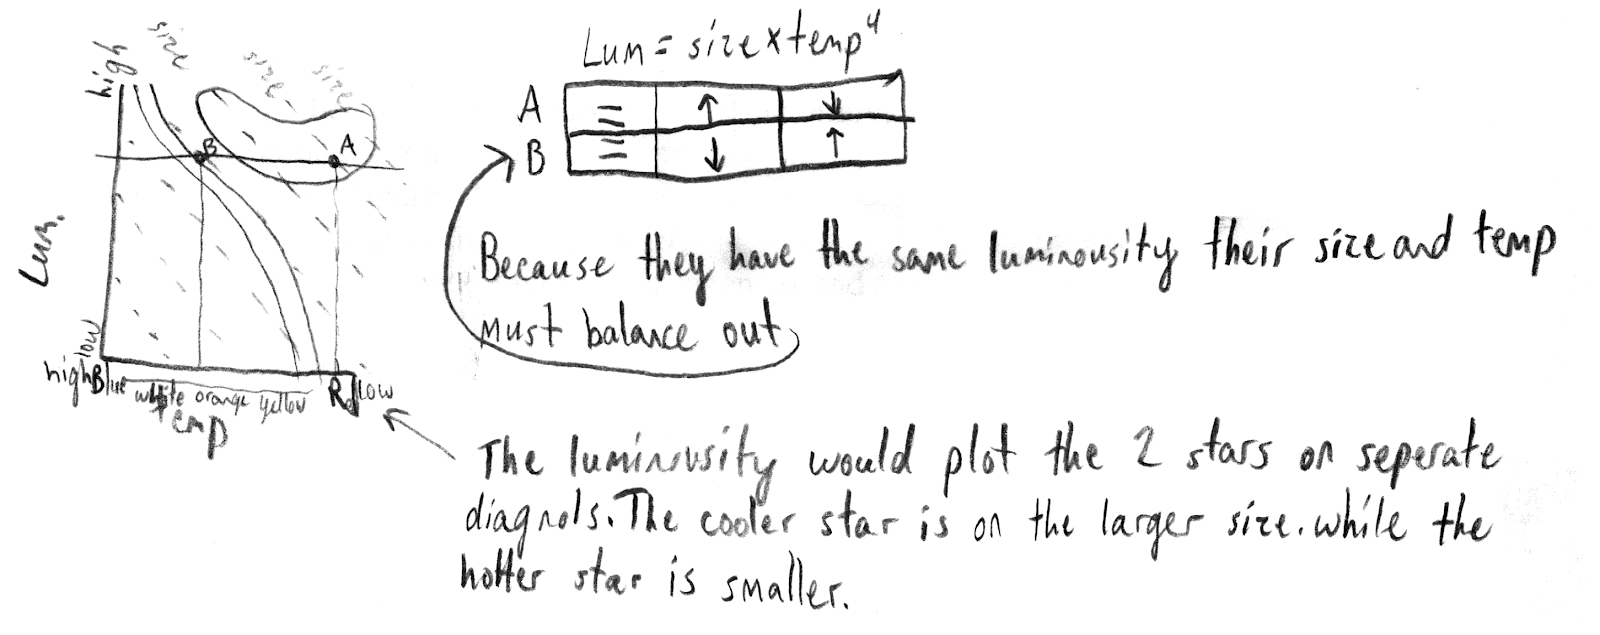 size
size
size
high
Lum = size x temp⁴
A = ↑ ↓
B = ↓ ↑
B
A
Lum.
Because they have the same luminousity their size and temp
must balance out
low
high Blue white orange yellow Red low
temp
The luminusity would plot the 2 stars on seperate
diagnols. The cooler star is on the larger size. while the
hotter star is smaller.